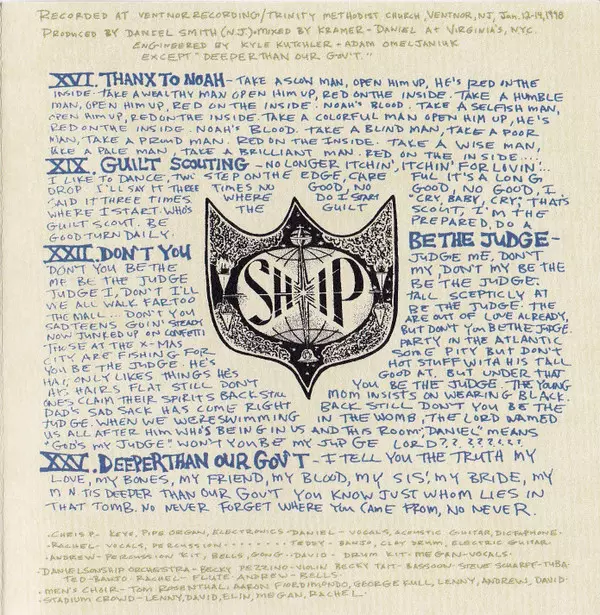 RECORDED AT VENTNOR RECORDING/TRINITY METHODIST CHURCH, VENTNOR, NJ, JAN. 12-14, 1998
PRODUCED BY DANIEL SMITH (N.J.) · MIXED BY KRAMER - DANIEL AT VIRGINIA'S, NYC.
ENGINEERED BY KYLE KUTCHLER + ADAM OMELJANIUK
EXCEPT "DEEPER THAN OUR GOV'T."
XVI. THANX TO NOAH - TAKE A SLOW MAN, OPEN HIM UP, HE'S RED ON THE
INSIDE. TAKE A WEALTHY MAN OPEN HIM UP, RED ON THE INSIDE. TAKE A HUMBLE
MAN, OPEN HIM UP, RED ON THE INSIDE. NOAH'S BLOOD. TAKE A SELFISH MAN,
OPEN HIM UP, RED ON THE INSIDE. TAKE A COLORFUL MAN OPEN HIM UP, HE'S
RED ON THE INSIDE. NOAH'S BLOOD. TAKE A BLIND MAN, TAKE A POOR
MAN, TAKE A PROUD MAN. RED ON THE INSIDE. TAKE A WISE MAN,
TAKE A PALE MAN, TAKE A BRILLIANT MAN. RED ON THE INSIDE....
XIX. GUILT SCOUTING - NO LONGER ITCHIN', ITCHIN' FOR LOVIN'...
I LIKE TO DANCE, TWO STEP ON THE EDGE, CARE FUL IT'S A LONG
DROP. I'LL SAY IT THREE TIMES NO GOOD, NO GOOD, NO GOOD, I
SAID IT THREE TIMES. WHERE DO I START "CRY, BABY, CRY", THAT'S
WHERE I START. WHO'S THE GUILT SCOUT, I'M THE
GUILT SCOUT. BE PREPARED, DO A
GOOD TURN DAILY.
SHIP
XXII. DON'T YOU BE THE JUDGE -
DON'T YOU BE THE JUDGE ME, DON'T
ME BE THE JUDGE MY, DON'T MY BE THE
JUDGE I, DON'T I'LL BE THE JUDGE.
WE ALL WALK FAR TOO TALL SCEPTICLY AT
THE MALL... DON'T YOU BE THE JUDGE. THE
SAD TEENS GOIN' STEADY ARE OUT OF LOVE ALREADY,
NOW JUNKED UP ON CONFETTI BUT DON'T YOU BE THE JUDGE.
THOSE AT THE X-MAS PARTY IN THE ATLANTIC
CITY ARE FISHING FOR SOME PITY BUT DON'T
YOU BE THE JUDGE. HE'S HOT STUFF WITH HIS TALL
HAT, ONLY LIKES THINGS HE'S GOOD AT. BUT UNDER THAT
HAT HAIRS FLAT STILL DON'T YOU BE THE JUDGE. THE YOUNG
ONES CLAIM THEIR SPIRITS BACK STILL MOM INSISTS ON WEARING BLACK.
DAD'S SAD SACK HAS COME RIGHT BACK STILL DON'T YOU BE THE
JUDGE. WHEN WE WERE SWIMMING IN THE WOMB, THE LORD NAMED
US ALL AFTER HIM WHO'S BEING IN US AND THIS ROOM, "DANIEL" MEANS
"GOD'S MY JUDGE" WON'T YOU BE MY JUDGE LORD???????
XXV. DEEPER THAN OUR GOV'T - I TELL YOU THE TRUTH MY
LOVE, MY BONES, MY FRIEND, MY BLOOD, MY SIS', MY BRIDE, MY
IT IS DEEPER THAN OUR GOV'T YOU KNOW JUST WHOM LIES IN
THAT TOMB. NO NEVER FORGET WHERE YOU CAME FROM, NO NEVER.
CHRIS P - KEYS, PIPE ORGAN, ELECTRONICS · DANIEL - VOCALS, ACOUSTIC GUITAR, DICTAPHONE.
RACHEL - VOCALS, PERCUSSION........ TEDDY - BANJO, CLOT DRUM, ELECTRIC GUITAR.
ANDREW - PERCUSSION KIT, BELLS, GONG · DAVID - DRUM KIT · MEGAN - VOCALS.
DANIELSONSHIP ORCHESTRA - BECKY PEZZINO - VIOLIN BECKY TAIT - BASSOON STEVE SCHARFF - TUBA
TED - BANJO. RACHEL - FLUTE. ANDREW - BELLS.
MEN'S CHOIR - TOM ROSENTHAL, AARON FIORDIMONDO, GEORGE KULL, LENNY, ANDREW, DAVID
STADIUM CROWD - LENNY, DAVID, ELIN, MEGAN, RACHEL.